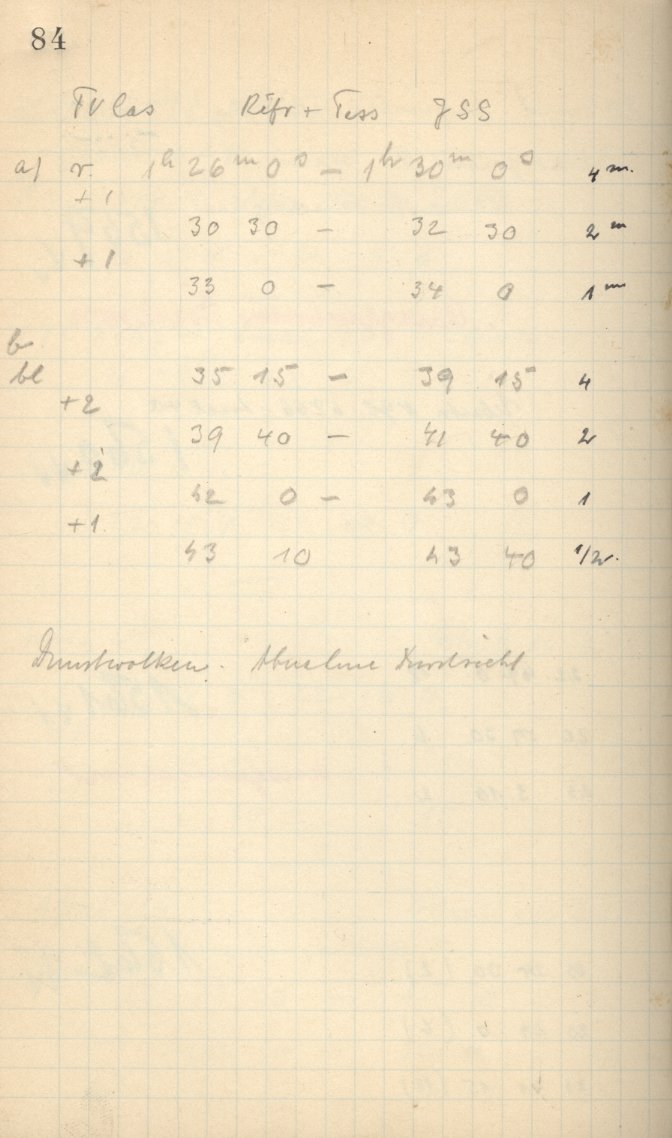 84
TV Cas Refr + Tess GSS
a) r. 1h 26m 0s – 1h 30m 0s 4m.
+1
30 30 – 32 30 2m
+1
33 0 – 34 0 1m
b
bl 35 15 – 39 15 4
+2
39 40 – 41 40 2
+2
42 0 – 43 0 1
+1
43 10 43 40 1/2.
Dunstwolken. Abnahme Durchsicht